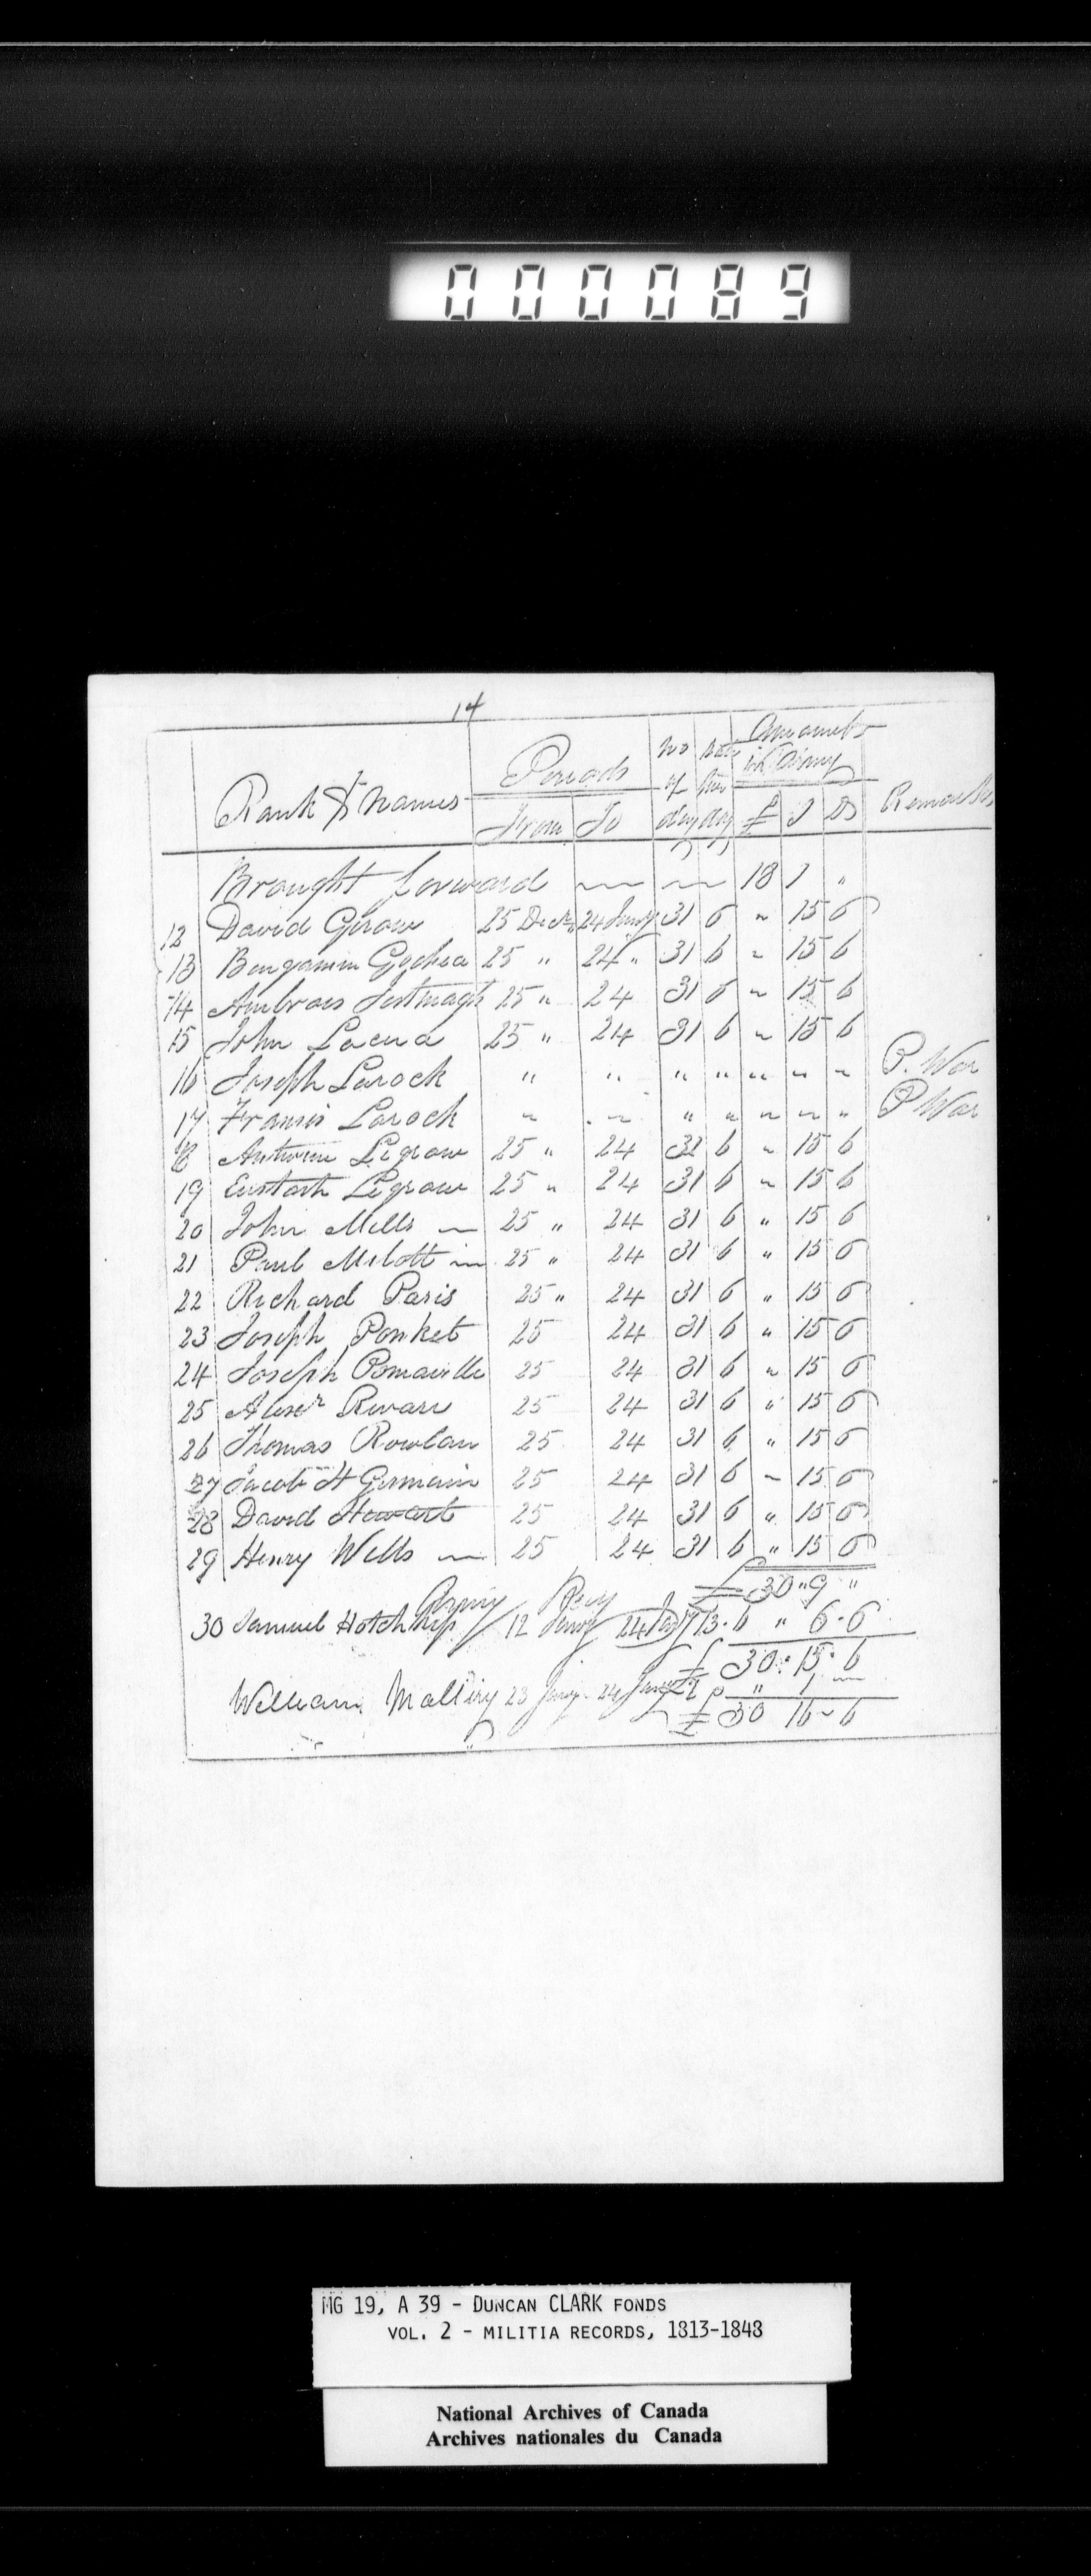 000089
14
Rank & Names Periods No of days Rate per day Amount in Army Remarks
From To £ S D
Brought forward 18 1 "
12 David Gerow 25 Decr 24 Jany 31 6 " 15 6
13 Bengamin 25 " 24 " 31 6 " 15 6
14 Ambrois 25 " 24 31 6 " 15 6
15 John Lacua 25 " 24 31 6 " 15 6
16 Joseph Larock " " " " " " " P. War
17 Francis Larock " " " " " " " P War
18 Antwine Legrow 25 " 24 31 6 " 15 6
19 Eustach Legrow 25 " 24 31 6 " 15 6
20 John Mills 25 " 24 31 6 " 15 6
21 Paul Melott 25 " 24 31 6 " 15 6
22 Richard Paris 25 " 24 31 6 " 15 6
23 Joseph Ponket 25 24 31 6 " 15 6
24 Joseph Pomaville 25 24 31 6 " 15 6
25 Alexr Rivare 25 24 31 6 " 15 6
26 Thomas Rowlan 25 24 31 6 " 15 6
27 Jacob St Germain 25 24 31 6 " 15 6
28 David Stewart 25 24 31 6 " 15 6
29 Henry Wells 25 24 31 6 " 15 6
£ 30 " 9 "
Army Pay
30 Samuel Hotchkip 12 Jany 24 13 . 6 " 6 . 6
£ 30 . 15 . 6
William Mallery 23 Jany 24 Jany 2 6 " 1
£ 30 16 - 6
MG 19, A 39 - DUNCAN CLARK FONDS
VOL. 2 - MILITIA RECORDS, 1813-1848
National Archives of Canada
Archives nationales du Canada